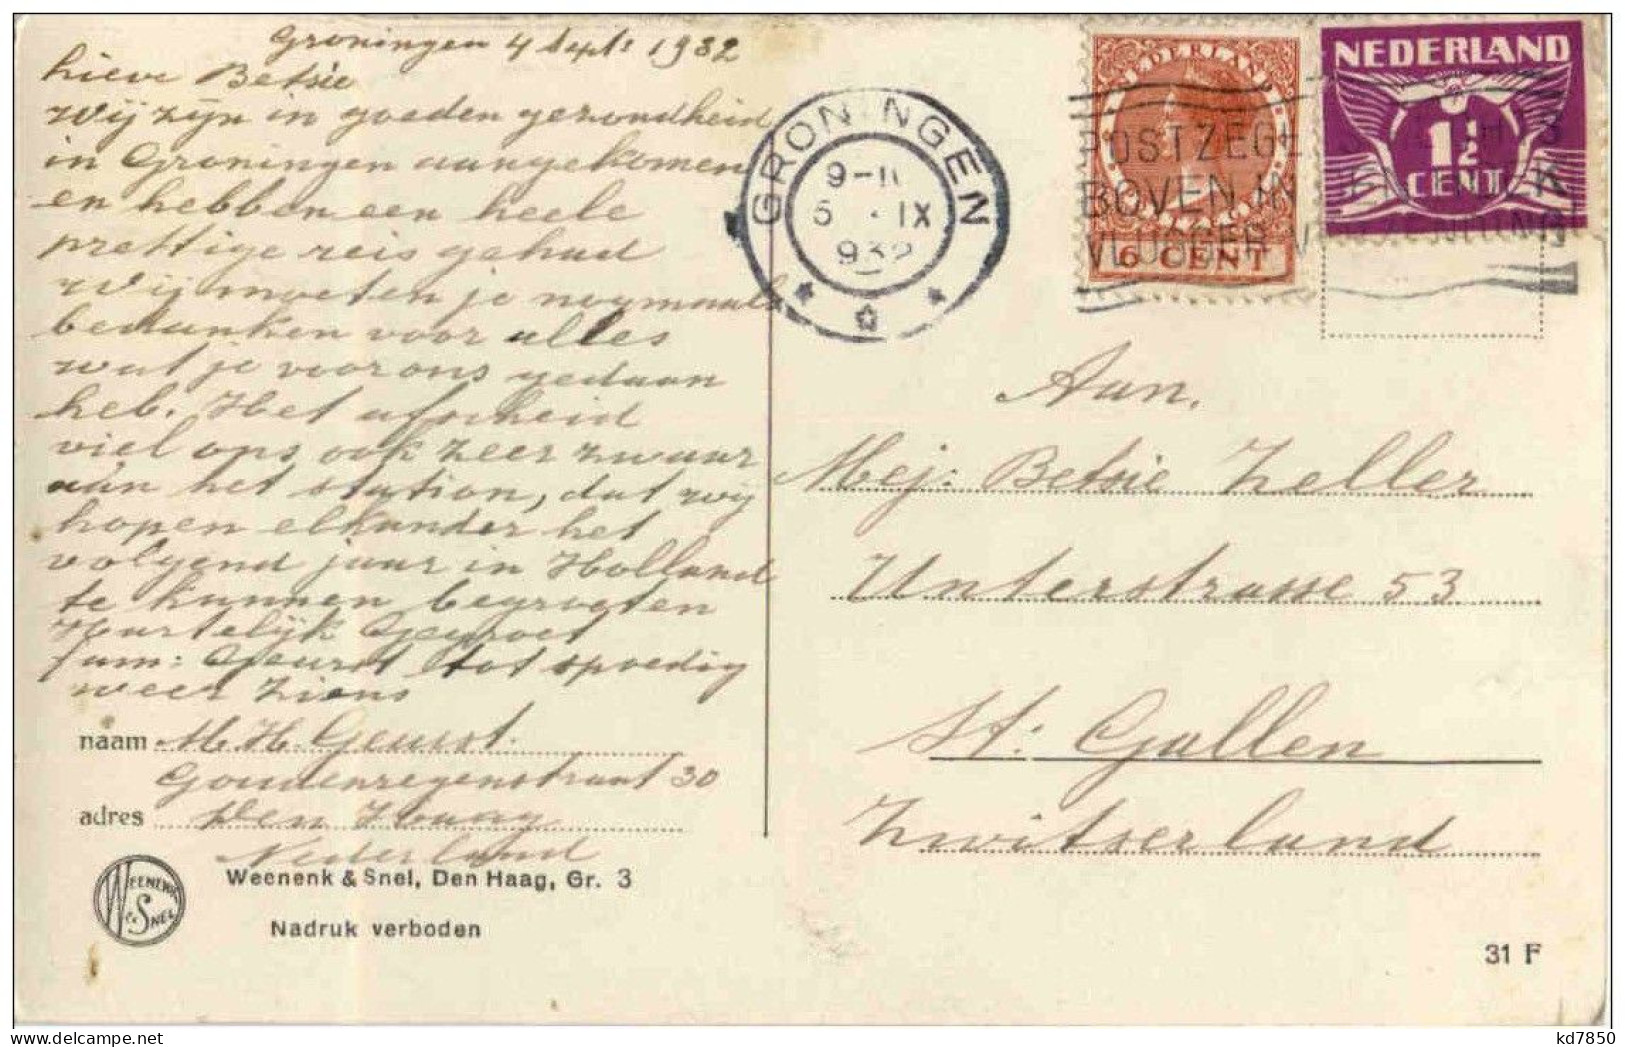 Groningen 4 Sept: 1932
Lieve Betsie
Wij zijn in goeden gezondheid
in Groningen aangekomen
en hebben een heele
prettige reis gehad
Wij moeten je nogmaals
bedanken voor alles
wat je voor ons gedaan
heb. Het afscheid
viel ons ook zeer zwaar
aan het station, dat wij
hopen elkander het
volgend jaar in Holland
te kunnen begroeten
Hartelijk Gegroet
fam: Geurst tot spoedig
weer ziens
naam M. H. Geurst.
Goudenregenstraat 30
adres Den Haag
Nederland
WEENENK & SNEL
Weenenk & Snel, Den Haag, Gr. 3
Nadruk verboden
GRONINGEN
9-
5 IX
932
NEDERLAND
6 CENT
NEDERLAND
1½
CENT
POSTZEGE
BOVEN IN
VLUGGER
Aan,
Mej: Betsie Zeller
Unterstrasse 53
St: Gallen
Zwitserland
31 F
kd7850